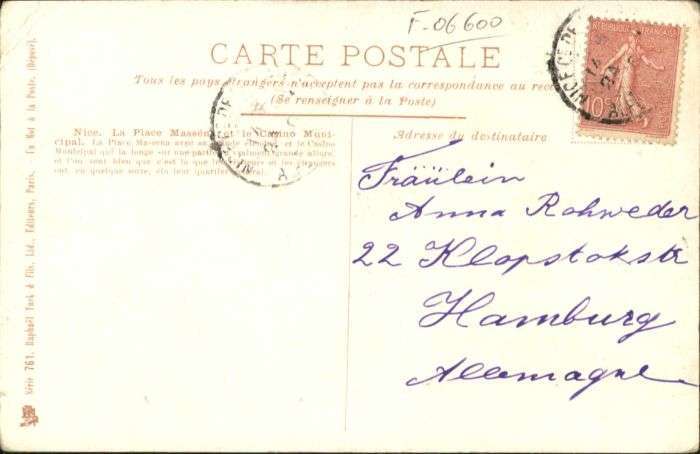 F-06600
CARTE POSTALE
Tous les pays étrangers n'acceptent pas la correspondance au
(Se renseigner à la Poste)
Nice. La Place Masséna et le Casino Muni-
cipal. La Place Masséna avec sa et le Casino
Municipal qui la longe sur une
et l'on sent bien que c'est là que les et les étrangers
ont, en quelque sorte, élu leur quartier général.
Adresse du destinataire
Fräulein
Anna Rohweder
22 Klopstokstr
Hamburg
Allemagne
REPUBLIQUE FRANÇAISE
10
NICE
NICE
Série 761. Raphaël Tuck & Fils, Ltd., Editeurs, Paris. En Dét à la Poste. (Déposé).